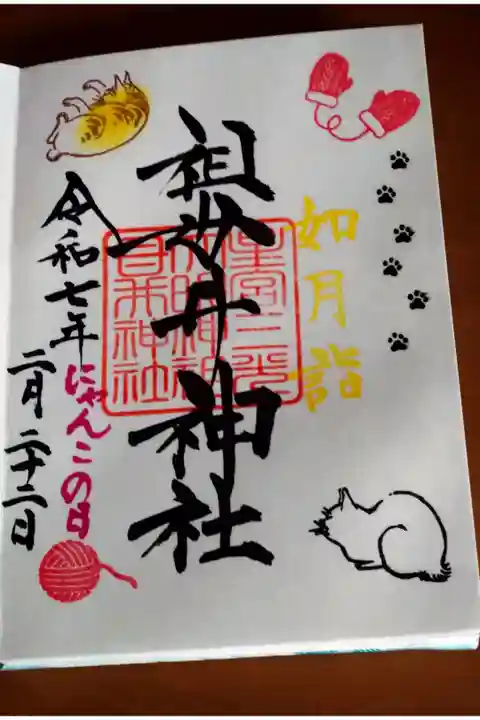 如月詣
祖母井神社
星宮三光
大明神祖
母井神社
令和七年
にゃんこの日
二月二十二日